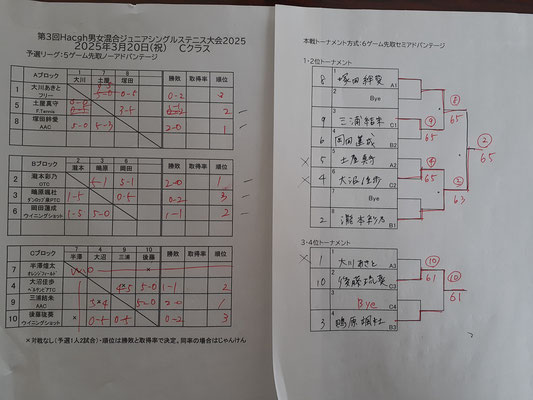 第3回Hacgh男女混合ジュニアシングルステニス大会2025
2025年3月20日(祝) Cクラス
予選リーグ:5ゲーム先取ノーアドバンテージ
Aブロック 1 大川 5 土屋 8 塚田 勝敗 取得率 順位
1 大川あきと フリー 0-5 0-2 3
5 土屋真守 F.Tennis 3-5 2
8 塚田絆愛 AAC 5-0 5-3 2-0 1
Bブロック 2 瀧本 3 嶋原 6 岡田 勝敗 取得率 順位
2 瀧本彩乃 OTC 5-1 5-1 2-0 1
3 嶋原颯杜 ダンロップ繭PTC 1-5 0-5 0-2 3
6 岡田蓮成 ウイニングショット 1-5 5-0 1-1 2
Cブロック 7 半澤 4 大沼 9 三浦 10 後藤 勝敗 取得率 順位
7 半澤信太 オレンジフィールド ×
4 大沼佳歩 ベルテンピアTC 4-5 5-0 1-1 2
9 三浦結未 AAC 5-4 5-0 2-0 1
10 後藤琉葵 ウイニングショット × 0-5 0-5 0-2 3
×対戦なし(予選1人2試合)・順位は勝敗と取得率で決定。同率の場合はじゃんけん
本戦トーナメント方式:6ゲーム先取セミアドバンテージ
1-2位トーナメント
8 1 塚田絆愛 A1
2 Bye
⑧
9 3 三浦結未 C1
⑨ 65
6 4 岡田蓮成 B2
65
② 65
× 5 5 土屋真守 A2
④ 65
× 4 6 大沼佳歩 C2
② 63
7 Bye
2 8 瀧本彩乃 B1
3-4位トーナメント
× 1 1 大川あきと A3
⑩ 61
10 2 後藤琉葵 C3
⑩ 61
3 Bye C4
3 4 嶋原颯杜 B3